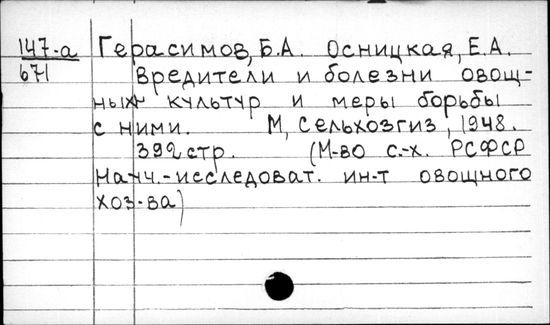 147-а Герасимов, Б.А. Осницкая, Е.А.
671 Вредители и болезни овощ-
ных культур и меры борьбы
с ними. М, Сельхозгиз, 1948.
392 стр. (М-во с.-х. РСФСР
Научн.-исследоват. ин-т овощного
хоз-ва)